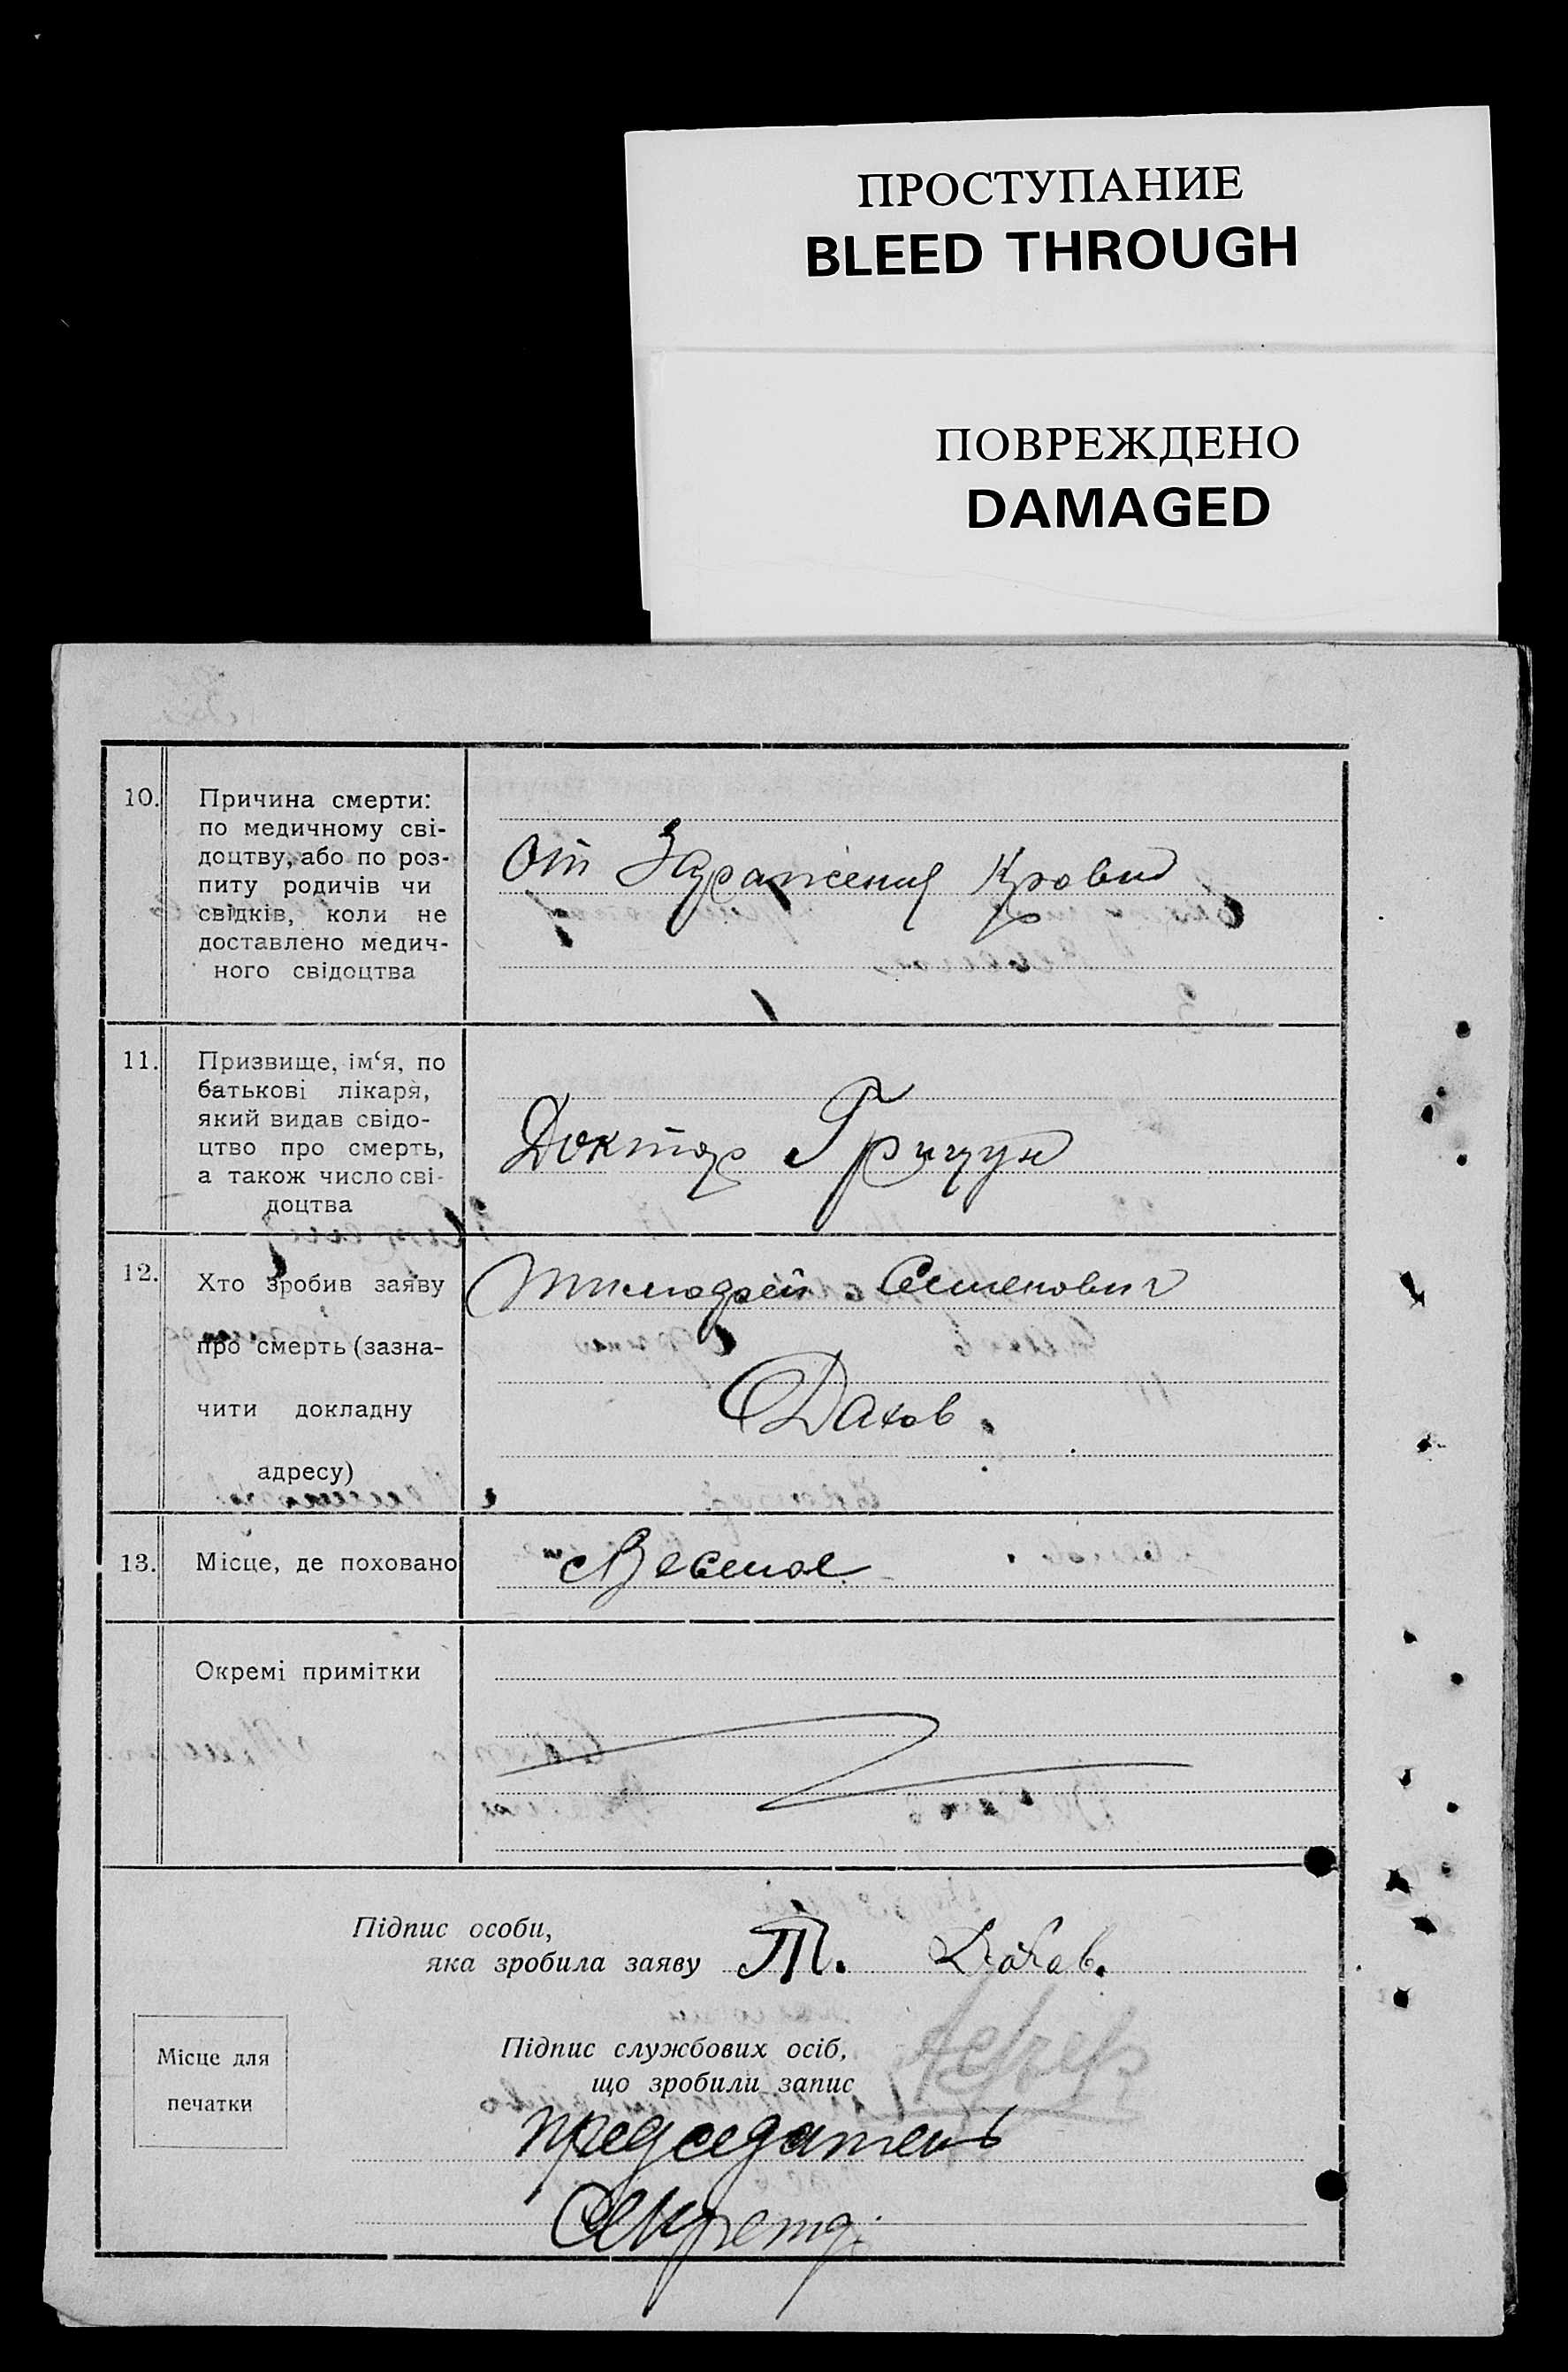 ПРОСТУПАНИЕ
BLEED THROUGH
ПОВРЕЖДЕНО
DAMAGED
10. Причина смерти:
по медичному сві-
доцтву, або по роз-
питу родичів чи
свідків, коли не
доставлено медич-
ного свідоцтва
От Заражения Крови
11. Призвище, ім‘я, по
батькові лікаря,
який видав свідо-
цтво про смерть,
а також число сві-
доцтва
Доктор Грицун
12. Хто зробив заяву
про смерть (зазна-
чити докладну
адресу)
Тимофей Семенович
Дахов.
13. Місце, де поховано
Веселое
Окремі примітки
Підпис особи,
яка зробила заяву Т. Дахов.
Місце для
печатки
Підпис службових осіб,
що зробили запис
председатель
Секретар